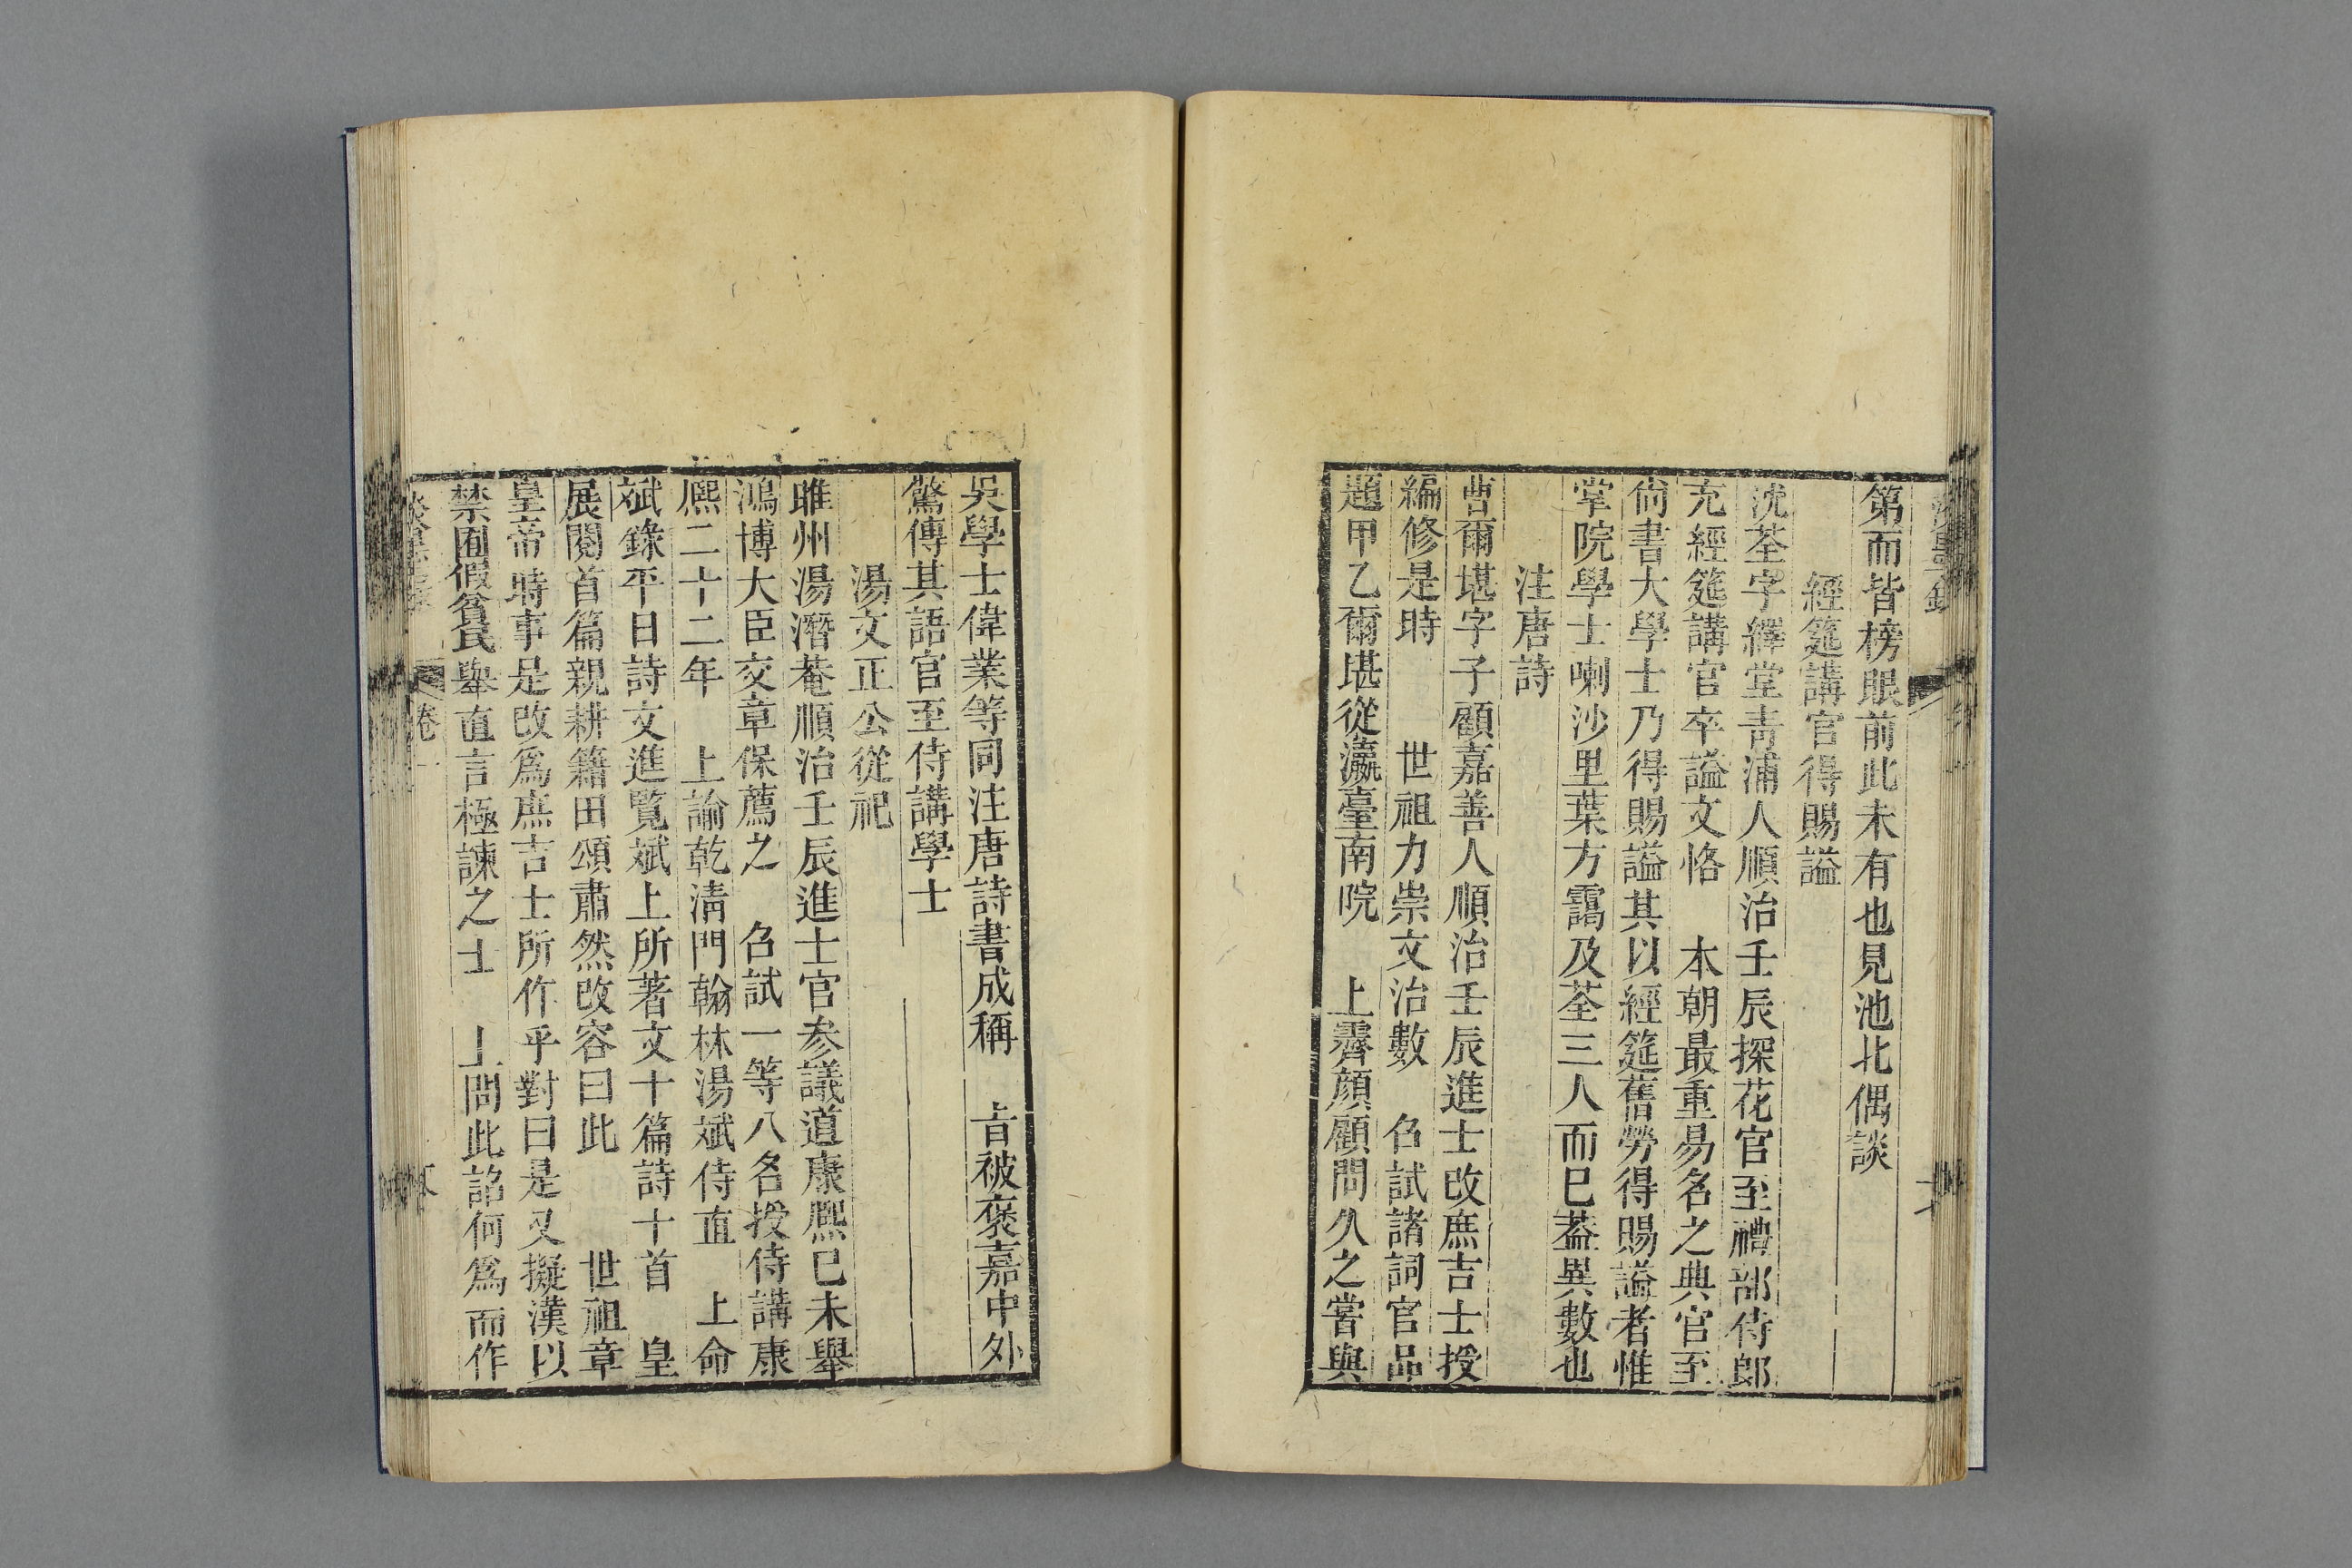 第而皆榜眼前此未有也見池北偶談
經筵講官得賜謚
沈荃字繹堂靑浦人順治壬辰探花官至禮部侍郎
充經筵講官卒謚文恪　本朝最重易名之典官至
尙書大學士乃得賜謚其以經筵舊勞得賜謚者惟
掌院學士喇沙里葉方靄及荃三人而已葢異數也
注唐詩
曹爾堪字子顧嘉善人順治壬辰進士改庶吉士授
編修是時　世祖力崇文治數　召試諸詞官品
題甲乙爾堪從瀛臺南院　上霽顔顧問久之嘗與
吳學士偉業等同注唐詩書成稱　旨被褒嘉中外
驚傳其語官至侍講學士
湯文正公從祀
睢州湯潛菴順治壬辰進士官参議道康熙己未舉
鴻博大臣交章保薦之　召試一等八名授侍講康
熙二十二年　上諭乾淸門翰林湯斌侍直　上命
斌錄平日詩文進覽斌上所著文十篇詩十首　皇
展閱首篇親耕籍田頌肅然改容曰此　世祖章
皇帝時事是改爲庶吉士所作乎對曰是又擬漢以
禁囿假貧民舉直言極諫之士　上問此詔何爲而作
卷一